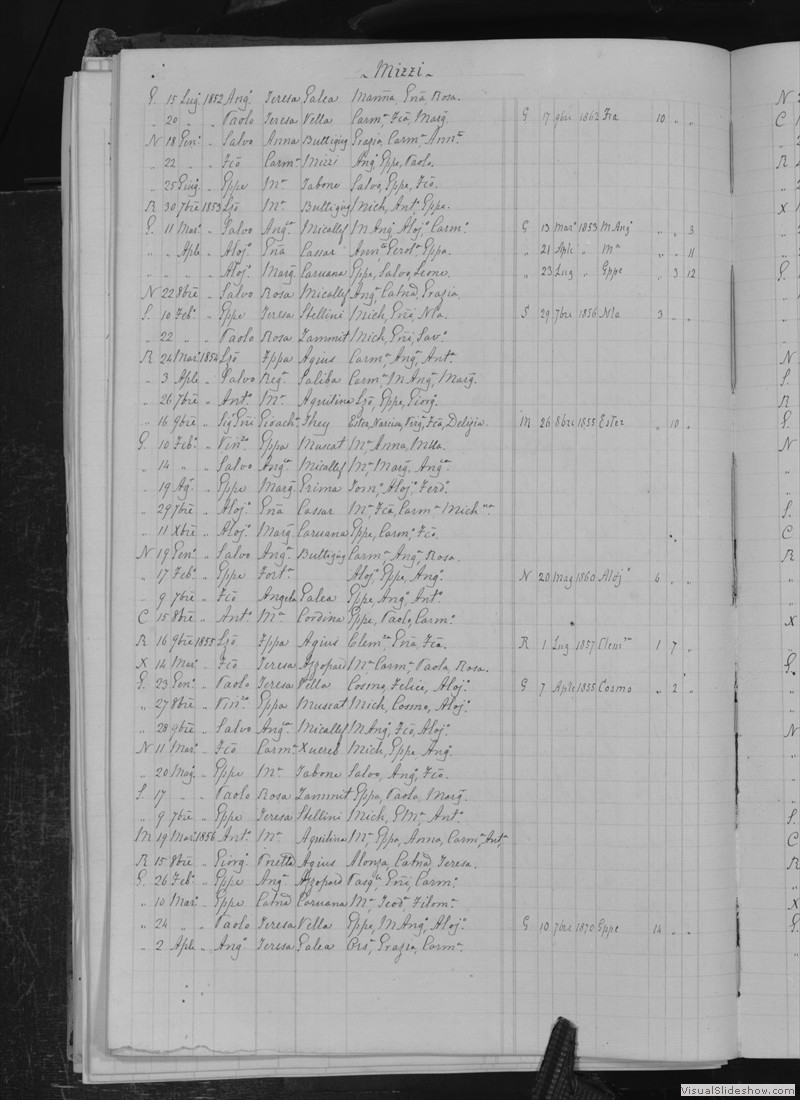 Mizzi
G. 15 Lug. 1852 Ang. Teresa Galea Marina, Gnã Rosa.
" 20 " " Paolo Teresa Vella Carm. Fcõ, Marg. G 17 9bre 1862 Fra 10 " "
N 18 Gen. " Salvo Anna Buttigieg Grazia, Carm. Ann.
" 22 " " Fcõ Carm. Mizzi Ang. Gppe, Paolo.
" 25 Giug. " Gppe Ma Tabone Salvo, Gppe, Fcõ.
R 30 7bre 1853 Ma Buttigieg Mich. Ant. Gppa.
G. 11 Mar. " Salvo Ang. Micallef M. Ang. Aloj. Carm. G 13 Mar. 1853 M. Ang. " " 3
" " Aple " Aloj. Gnã Cassar Ann. Gppa. " 21 Aple " Ma " " 11
" " " " Aloj. Marg. Caruana Gppe, Salvo, Leone. " 23 Lug " Gppe " 3 12
N 22 8bre " Salvo Rosa Micallef Ang. Catnã, Grazia.
S. 10 Feb. " Gppe Teresa Stellini Mich, Gnã, Nla. S 29 7bre 1856 Nla 3 " "
" 22 " " Paolo Rosa Zammit Mich, Gnĩ, Sav.
R 24 Mar. 1854 Agius Carm. Ang. Ant.
" 3 Aple " Salvo Reg. Saliba Carm. M. Ang. Marg.
" 26 7bre " Ant. Ma Aquilina Gppa, Giorg.
" 16 9bre " Sig. Gnĩ Gioach. Ester, Narcisa, Virg. Fcõ, Delizia. M 26 8bre 1855 Ester " 10 "
G. 10 Feb. " Vinzo Gppa Muscat Ma, Anna, Mlla.
" 14 " " Salvo Ang. Micallef Ma, Marg. Ang.
" 19 Ag. " Gppe Marg. Grima Tom. Aloj. Ferd.
" 29 7bre " Aloj. Gnã Cassar Ma Fcõ, Carm. Mich.
" 11 Xbre " Aloj. Marg. Caruana Gppe, Carm. Fcõ.
N 19 Gen. " Salvo Ang. Buttigieg Carm. Ang. Rosa.
" 17 Feb. " Gppe Fort. Aloj. Gppe, Ang. N 20 Mag 1860 Aloj. 6 " "
" 9 7bre " Fcõ Angela Galea Gppe, Ang. Ant.
C 15 8bre " Ant. Ma Cordina Gppe, Paolo, Carm.
R 16 9bre 1855 Agius Clem. Gnã, Fcã. R 1 Lug 1857 Clem. 1 7 "
X 14 Mar. " Fcõ Teresa Azzopard Ma Carm. Paola, Rosa.
G. 23 Gen. " Paolo Teresa Vella Cosmo, Felice, Aloj. G 7 Aple 1855 Cosmo " 2 "
" 27 8bre " Vinzo Gppa Muscat Mich, Cosmo, Aloj.
" 28 9bre " Salvo Ang. Micallef M. Ang. Fcõ, Aloj.
N 11 Mar. " Fcõ Carm. Xuereb Mich, Gppe Ang.
" 20 Mag. " Gppe Ma Tabone Salvo, Ang. Fcõ.
S. 17 " " Paolo Rosa Zammit Gppa, Paola, Marg.
" 9 7bre " Gppe Teresa Stellini Mich, G.M. Ant.
M 19 Mar. 1856 Ant. Ma Aquilina Ma, Gppa, Anna, Carm. Ant.
R 15 8bre " Giorg. Agius Catnã, Teresa.
G. 26 Feb. " Gppe Ang. Azzopard Pasq. Gnĩ, Carm.
" 10 Mar. " Gppe Catnã Caruana Ma, Teod. Filom.
" 24 " " Paolo Teresa Vella Gppe, M. Ang. Aloj. G 10 7bre 1870 Gppe 14 " "
" 2 Aple " Ang. Teresa Galea Grazia, Carm.
VisualSlideshow.com